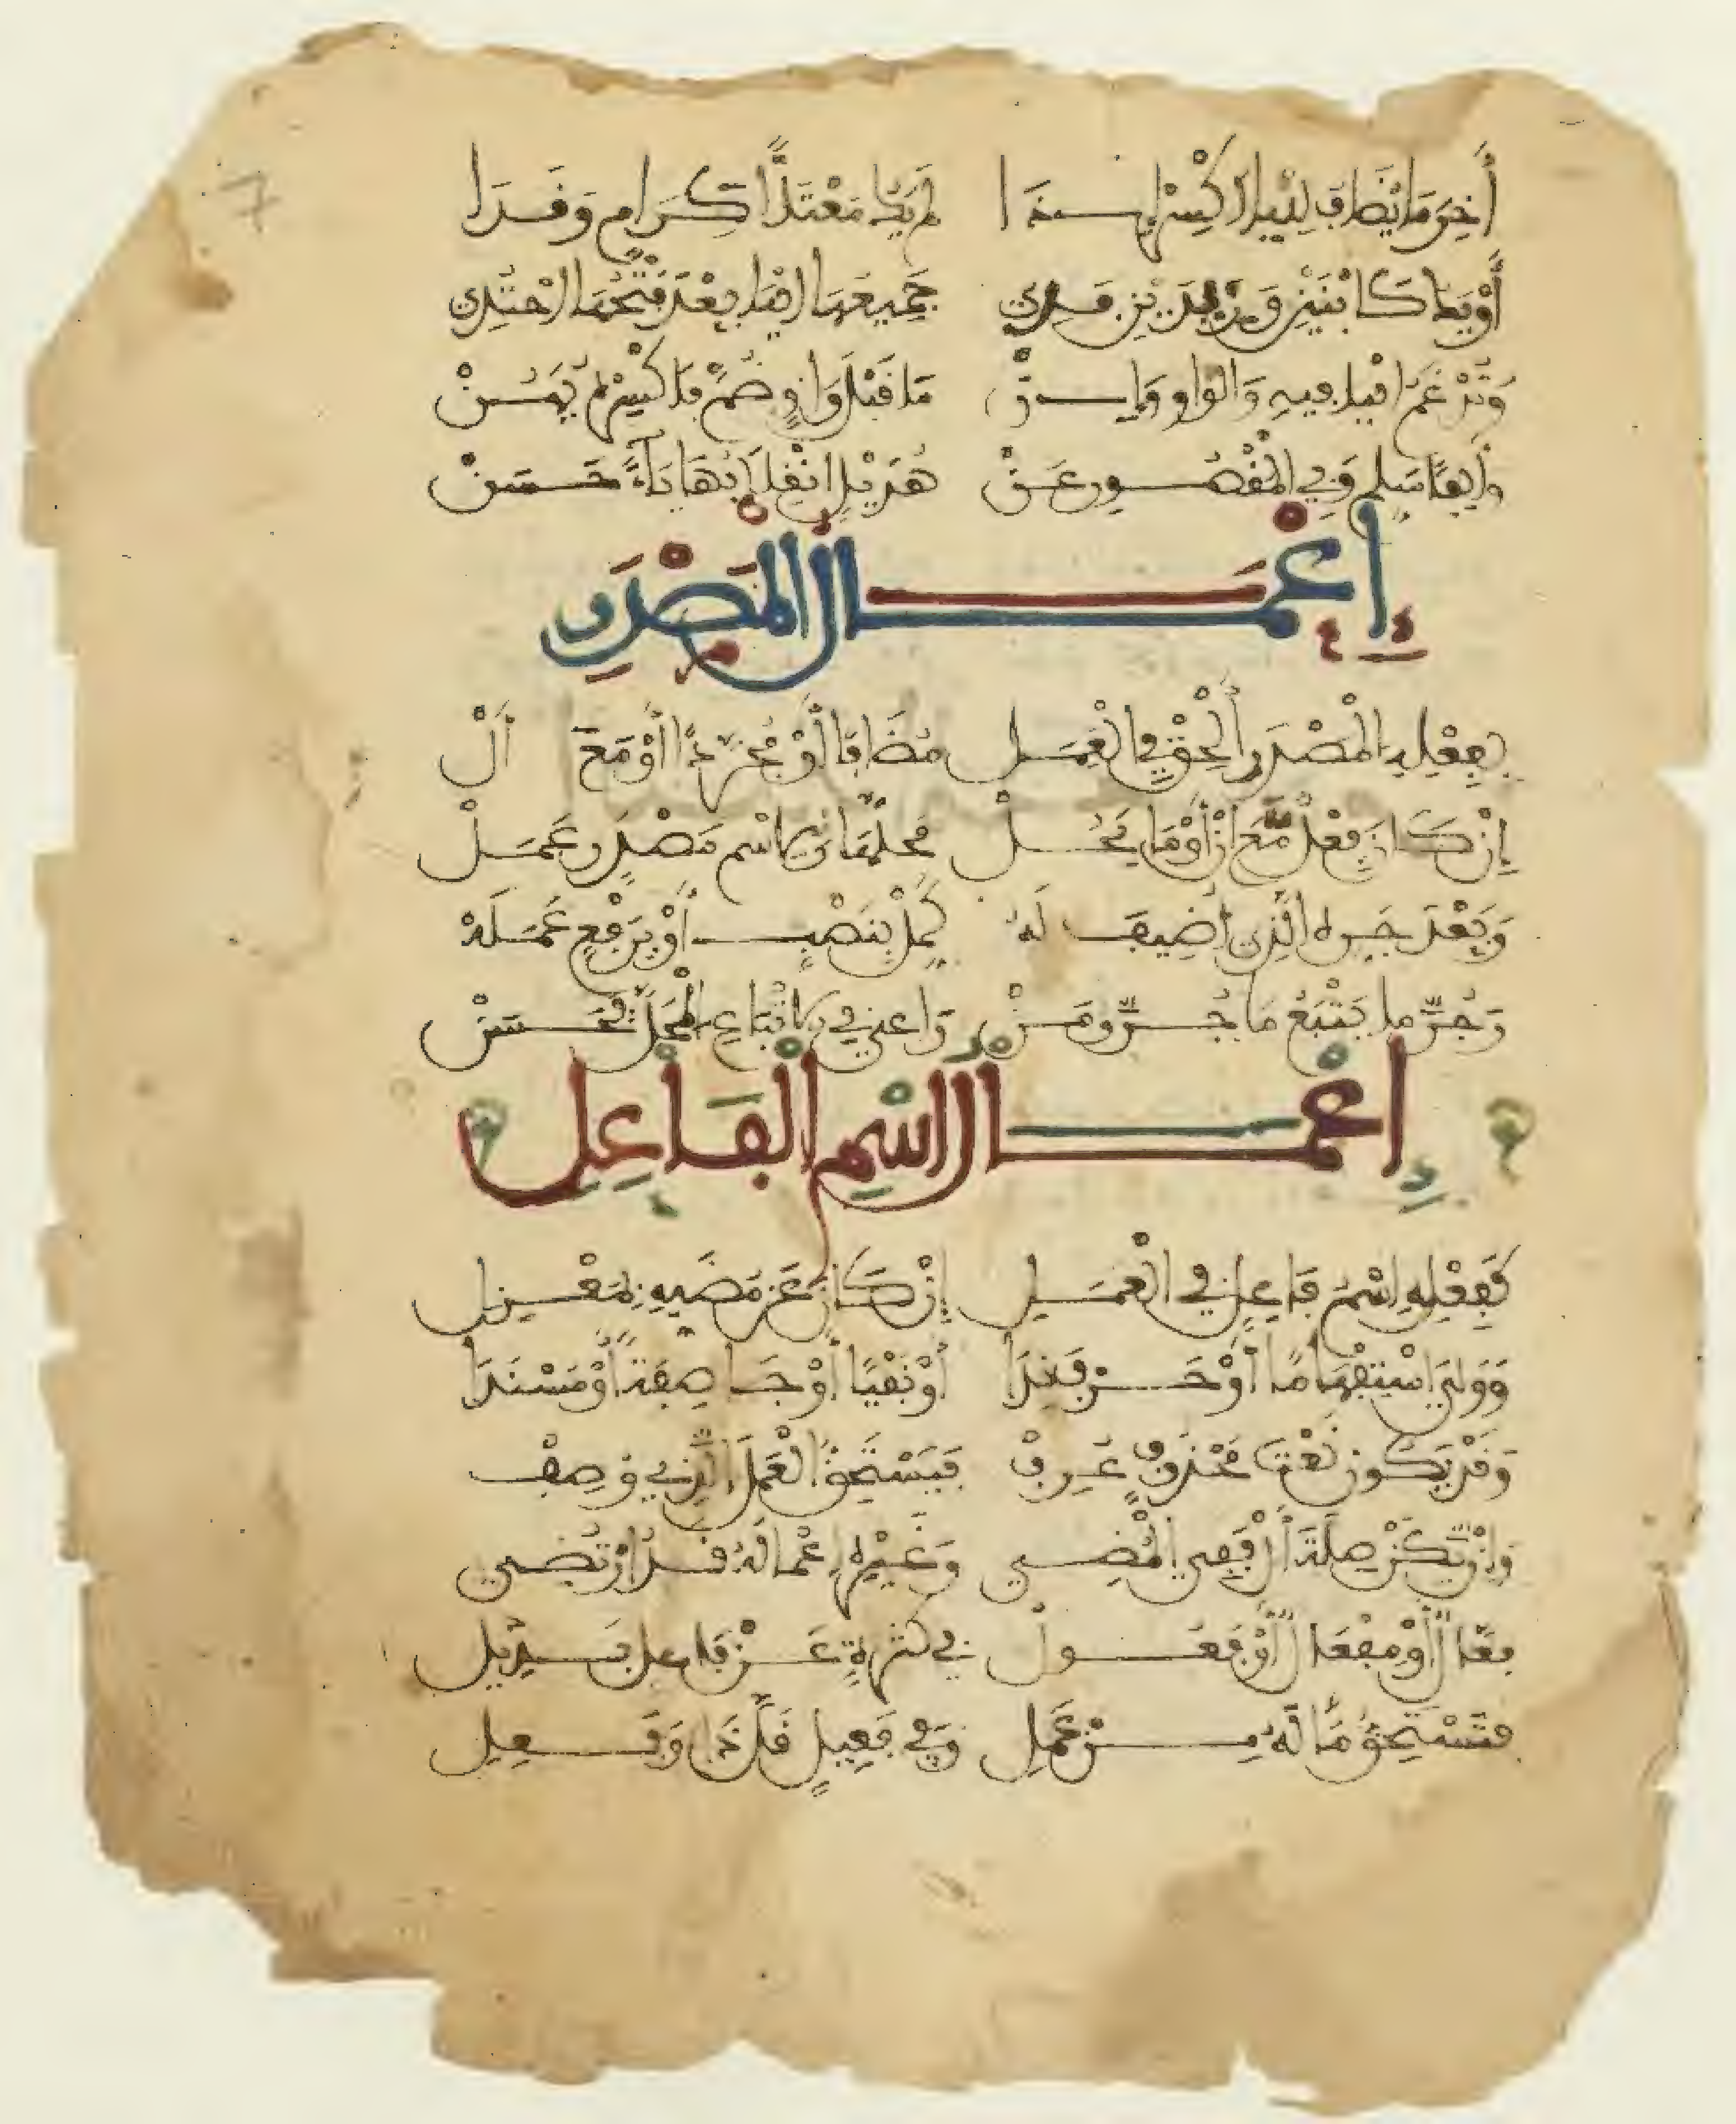 أَخِرَ مَا يُضَافُ لِلْيَا اكْسِرْ إِذَا لَمْ يَكُ مُعْتَلًّا كَرَامٍ وَقَذَا
أَوْ يَكُ كَابْنَيْنِ وَزَيْدِينَ فَذِي جَمِيعُهَا الْيَا بَعْدُ فَتْحُهَا احْتُذِي
وَتُدْغَمُ الْيَا فِيهِ وَالْوَاوُ وَإِنْ مَا قَبْلَ وَاوٍ ضُمَّ فَاكْسِرْهُ يَهُنْ
وَأَلِفًا سَلِّمْ وَفِي الْمَقْصُورِ عَنْ هُذَيْلٍ انْقِلَابُهَا يَاءً حَسَنْ
إِعْمَالُ الْمَصْدَرِ
بِفِعْلِهِ الْمَصْدَرَ أَلْحِقْ فِي الْعَمَلْ مُضَافًا أَوْ مُجَرَّدًا أَوْ مَعَ أَلْ
إِنْ كَانَ فِعْلٌ مَعَ أَنْ أَوْ مَا يَحُلْ مَحَلَّهُ وَلِاسْمِ مَصْدَرٍ عَمَلْ
وَبَعْدَ جَرِّهِ الَّذِي أُضِيفَ لَهْ كَمِّلْ بِنَصْبٍ أَوْ بِرَفْعٍ عَمَلَهْ
وَجُرَّ مَا يَتْبَعُ مَا جُرَّ وَمَنْ رَاعَى فِي الِاتْبَاعِ الْمَحَلَّ فَحَسَنْ
إِعْمَالُ اسْمِ الْفَاعِلِ
كَفِعْلِهِ اسْمُ فَاعِلٍ فِي الْعَمَلِ إِنْ كَانَ عَنْ مُضِيِّهِ بِمَعْزِلِ
وَوَلِيَ اسْتِفْهَامًا أَوْ حَرْفَ نِدَا أَوْ نَفْيًا أَوْ جَا صِفَةً أَوْ مُسْنَدَا
وَقَدْ يَكُونُ نَعْتَ مَحْذُوفٍ عُرِفْ فَيَسْتَحِقُّ الْعَمَلَ الَّذِي وُصِفْ
وَإِنْ يَكُنْ صِلَةَ أَلْ فَفِي الْمُضِي وَغَيْرِهِ إِعْمَالُهُ قَدِ ارْتُضِي
فَعَّالٌ أَوْ مِفْعَالٌ أَوْ فَعُولُ فِي كَثْرَةٍ عَنْ فَاعِلٍ بَدِيلُ
فَتَسْتَحِقُّ مَا لَهُ مِنْ عَمَلِ وَفِي فَعِيلٍ قَلَّ ذَا وَفَعِلِ